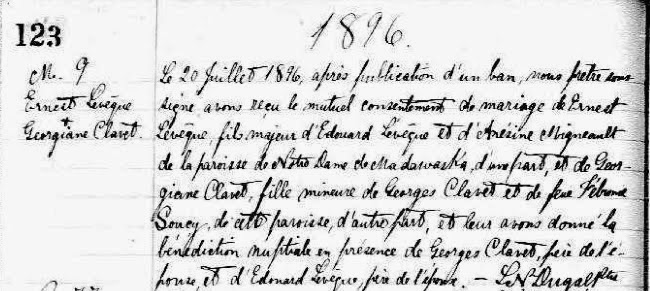 123
1896.
M. 9
Ernest Levêque
+
Georgiane Clavet.
Le 20 Juillet 1896, après publication d'un ban, nous prêtre sous-
signé avons reçu le mutuel consentement de mariage de Ernest
Levêque, fils majeur d'Edouard Levêque et d'Arésine Migneault
de la paroisse de Notre Dame de Madawaska, d'une part, et de Geor-
giane Clavet, fille mineure de Georges Clavet et de feue Fébronie
Soucy, de cette paroisse, d'autre part, et leur avons donné la
bénédiction nuptiale en présence de Georges Clavet, père de l'é-
pouse, et d'Edouard Levêque, père de l'époux. — L.N. Dugal Ptre